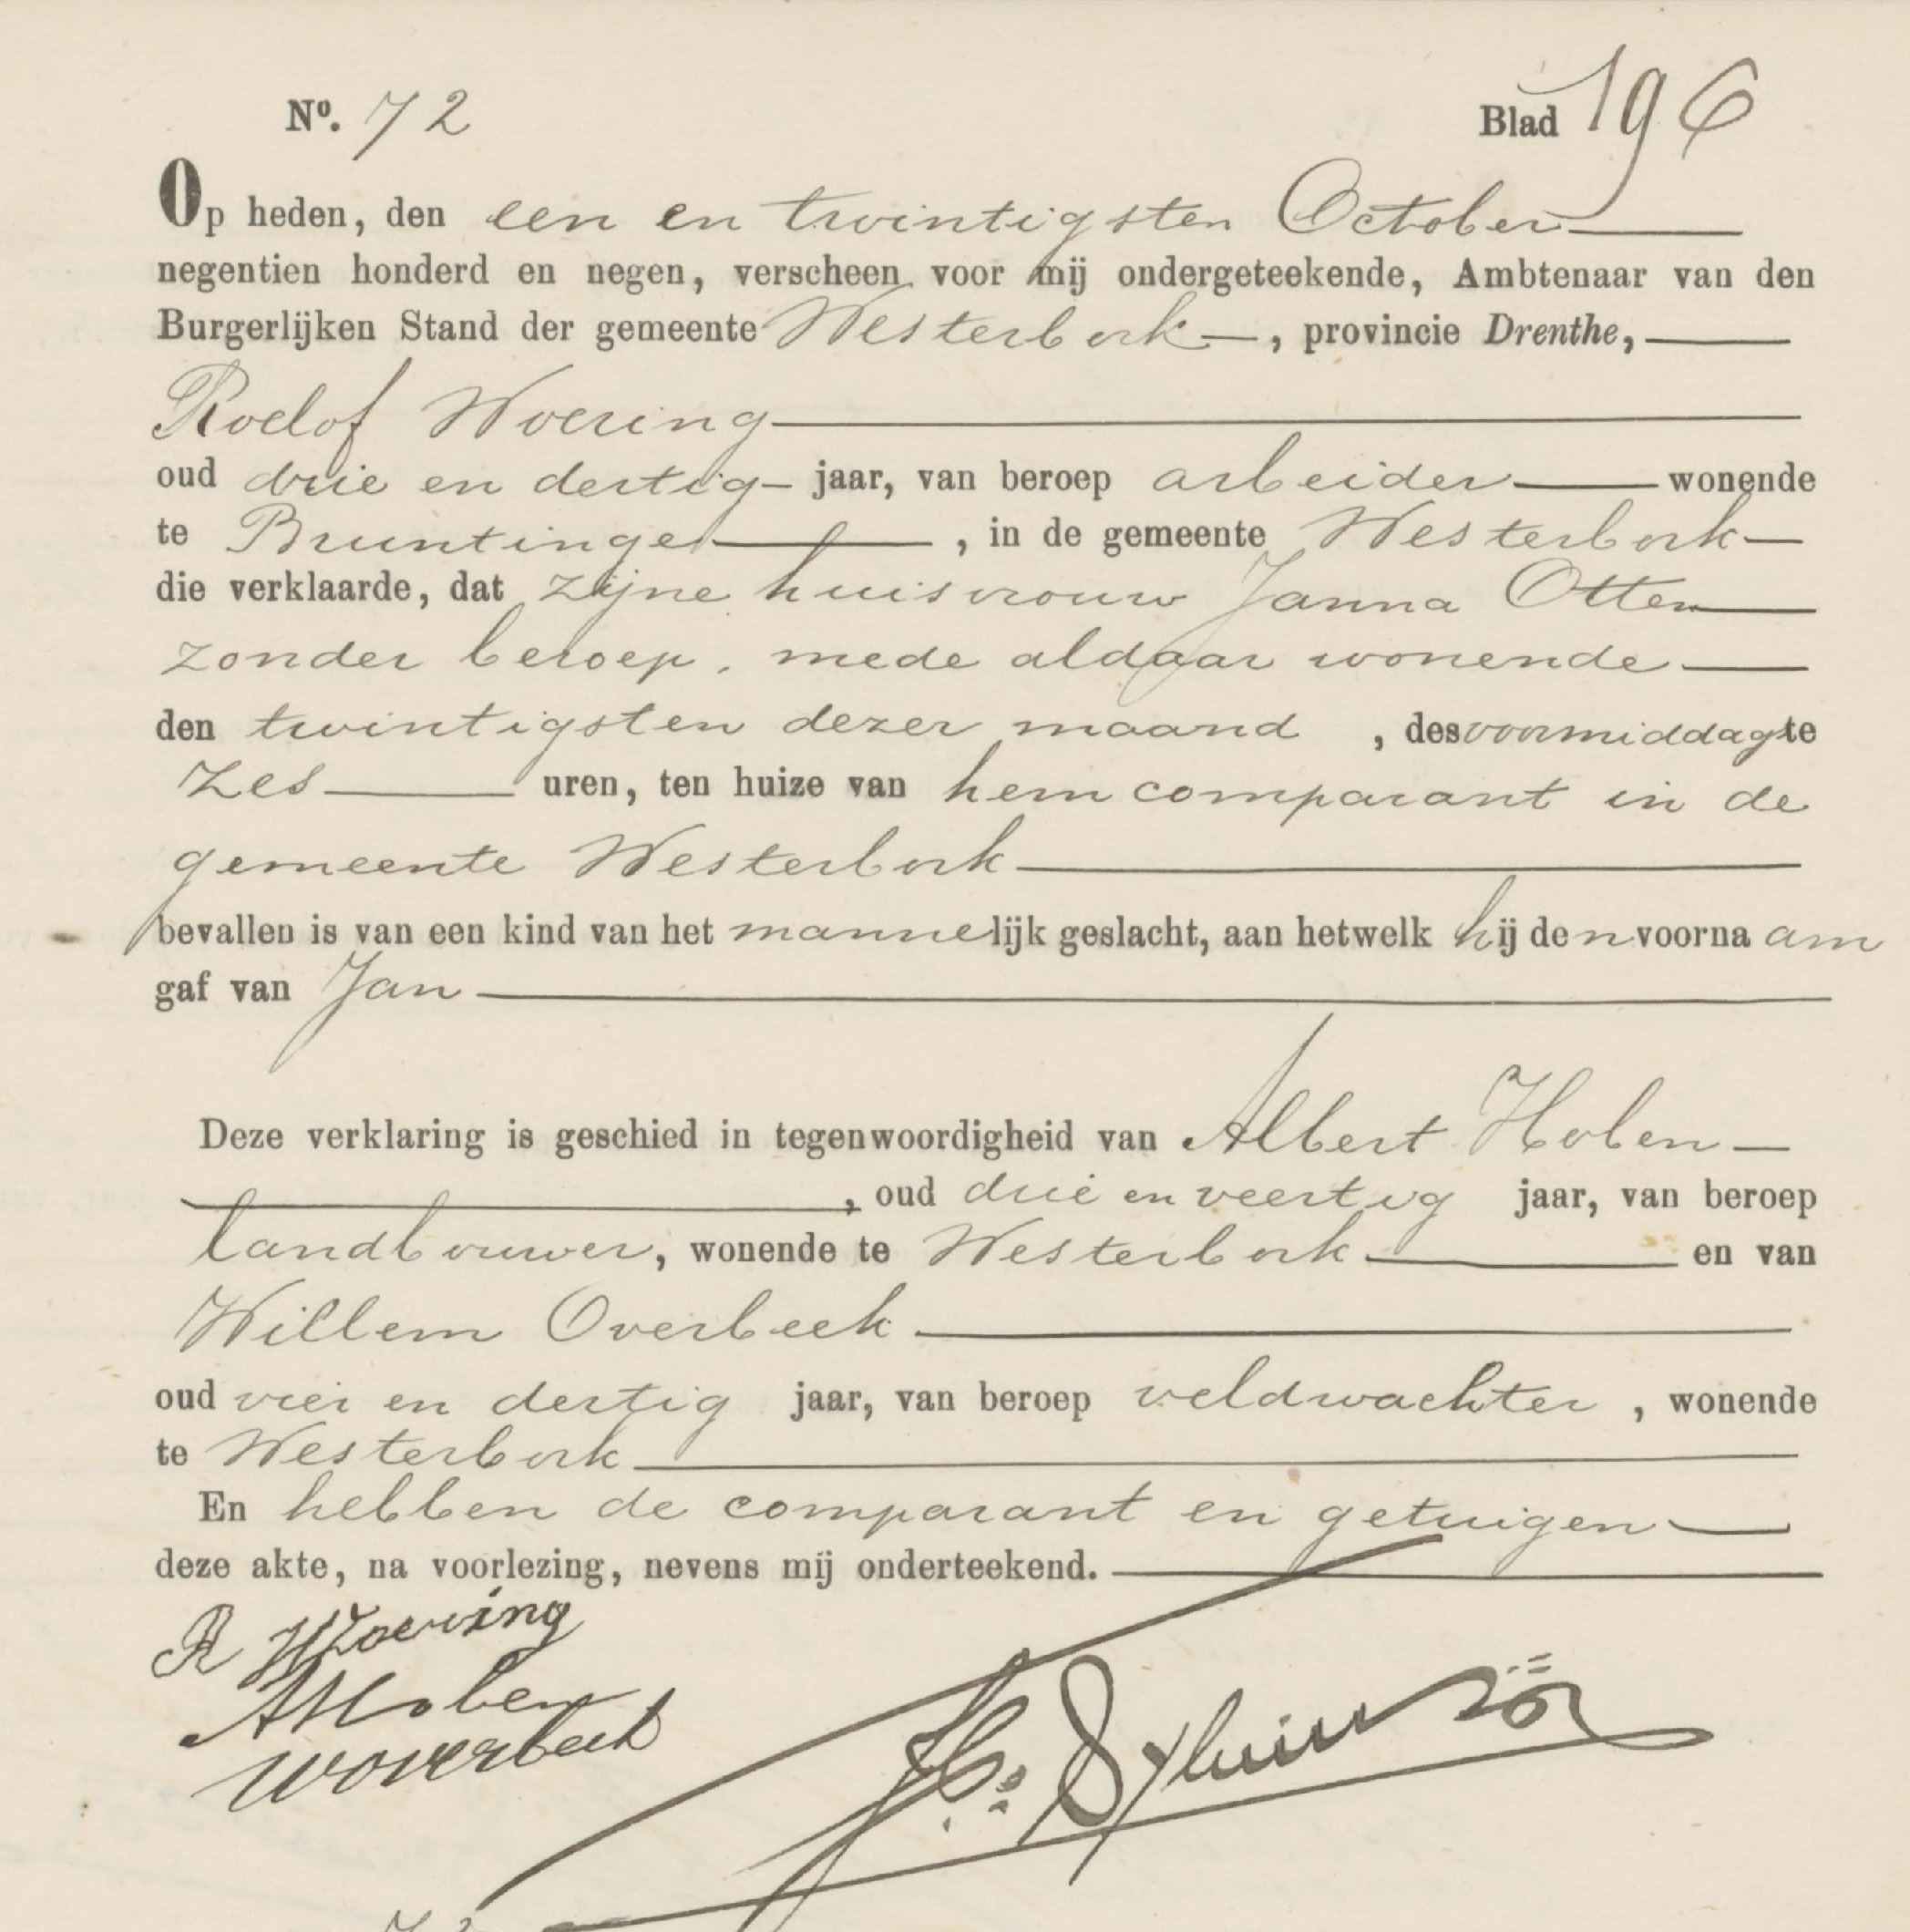 No. 72 Blad 196
Op heden, den een en twintigsten October
negentien honderd en negen, verscheen voor mij ondergeteekende, Ambtenaar van den
Burgerlijken Stand der gemeente Westerbork, provincie Drenthe,
Roelof Woering
oud drie en dertig jaar, van beroep arbeider wonende
te Bruntinge, in de gemeente Westerbork
die verklaarde, dat zijne huisvrouw Janna Otten
zonder beroep, mede aldaar wonende
den twintigsten dezer maand, des voormiddags te
zes uren, ten huize van hem comparant in de
gemeente Westerbork
bevallen is van een kind van het mannelijk geslacht, aan hetwelk hij den voornaam
gaf van Jan
Deze verklaring is geschied in tegenwoordigheid van Albert Hoben
, oud drie en veertig jaar, van beroep
landbouwer, wonende te Westerbork en van
Willem Overbeek
oud vier en dertig jaar, van beroep veldwachter, wonende
te Westerbork
En hebben de comparant en getuigen
deze akte, na voorlezing, nevens mij onderteekend.
R Woering
A Hoben
W Overbeek